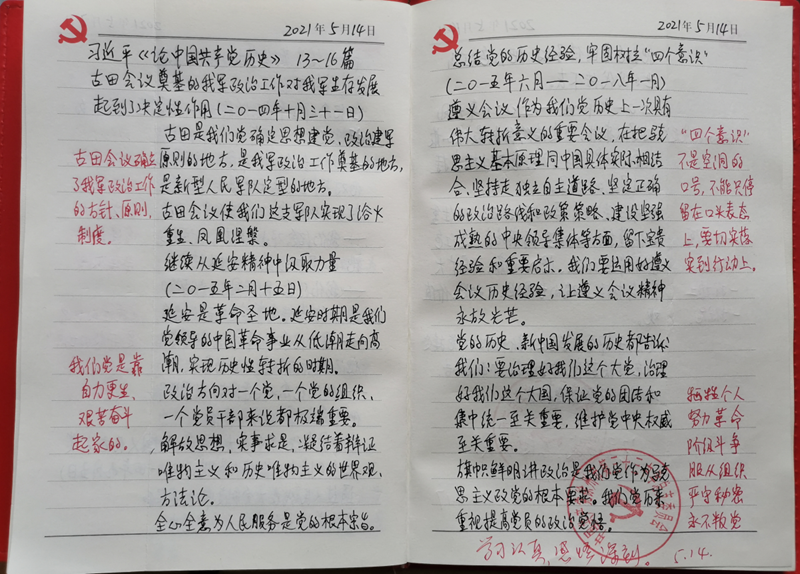 2021年5月14日
习近平《论中国共产党历史》 13～16篇
古田会议奠基的我军政治工作对我军生存发展
起到了决定性作用(二〇一四年十月三十一日)
古田是我们党确定思想建党、政治建军
原则的地方，是我军政治工作奠基的地方，
是新型人民军队定型的地方。
古田会议使我们这支军队实现了浴火
重生、凤凰涅槃。
古田会议确立
了我军政治工作
的方针、原则、
制度。
继续从延安精神中汲取力量
(二〇一五年二月十五日)
延安是革命圣地。延安时期是我们
党领导的中国革命事业从低潮走向高
潮、实现历史性转折的时期。
政治方向对一个党、一个党的组织、
一个党员干部来说都极端重要。
解放思想、实事求是，凝结着辩证
唯物主义和历史唯物主义的世界观、
方法论。
全心全意为人民服务是党的根本宗旨。
我们党是靠
自力更生、
艰苦奋斗
起家的。
2021年5月14日
总结党的历史经验，牢固树立"四个意识"
(二〇一五年六月——二〇一八年一月)
遵义会议作为我们党历史上一次具有
伟大转折意义的重要会议，在把马克
思主义基本原理同中国具体实际相结
合、坚持走独立自主道路、坚定正确
的政治路线和政策策略、建设坚强
成熟的中央领导集体等方面，留下宝贵
经验和重要启示。我们要运用好遵义
会议历史经验，让遵义会议精神
永放光芒。
"四个意识"
不是空洞的
口号，不能只停
留在口头表态
上，要切实落
实到行动上。
党的历史、新中国发展的历史都告诉
我们：要治理好我们这个大党、治理
好我们这个大国，保证党的团结和
集中统一至关重要，维护党中央权威
至关重要。
旗帜鲜明讲政治是我们党作为马克
思主义政党的根本要求。我们党历来
重视提高党员的政治觉悟。
牺牲个人
努力革命
阶级斗争
服从组织
严守秘密
永不叛党
学习认真，感悟深刻。 5.14.